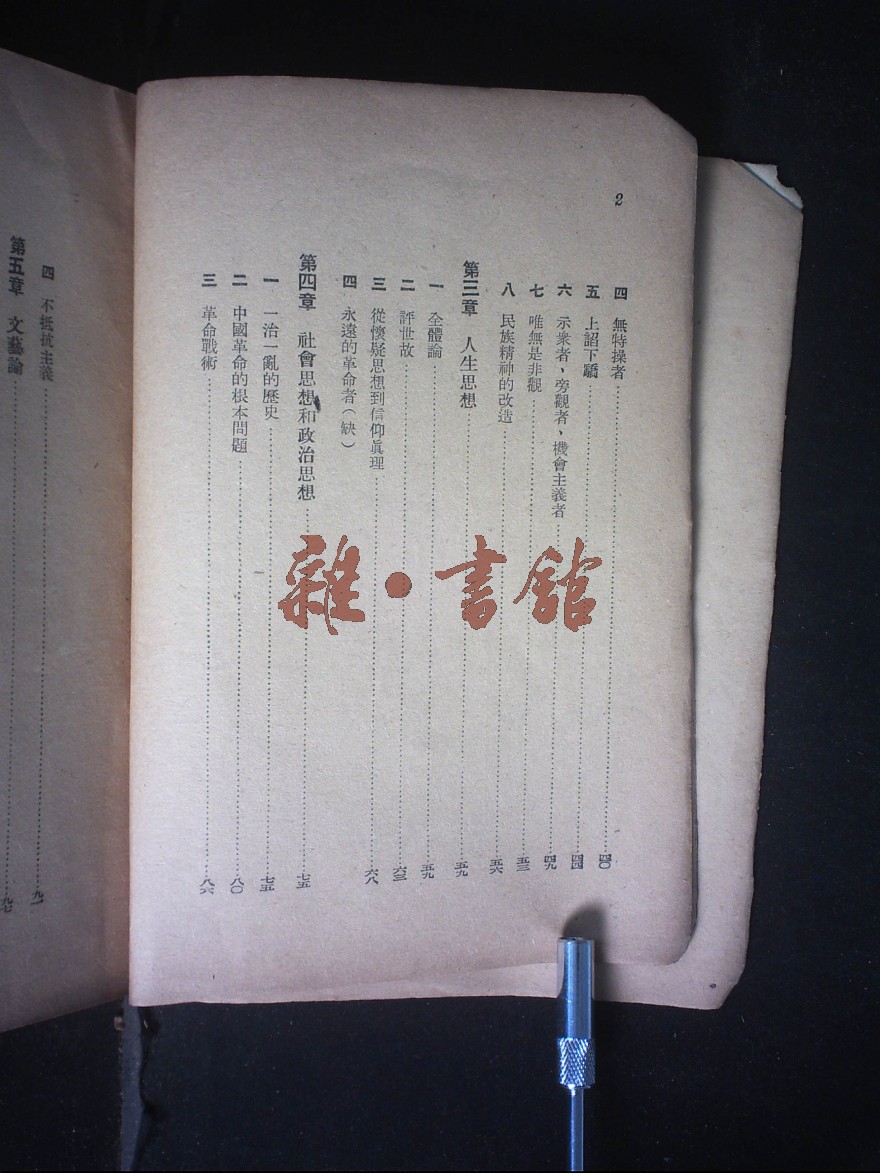 2
四 無特操者 四〇
五 上諂下驕 四四
六 示衆者、旁觀者、機會主義者 四九
七 唯無是非觀 五三
八 民族精神的改造 五六
第三章 人生思想 五九
一 全體論 五九
二 評世故 六三
三 從懷疑思想到信仰眞理 六八
四 永遠的革命者(缺)
第四章 社會思想和政治思想 七五
一 一治一亂的歷史 七五
二 中國革命的根本問題 八〇
三 革命戰術 八六
四 不抵抗主義 九一
第五章 文藝論 九七
雜·書館